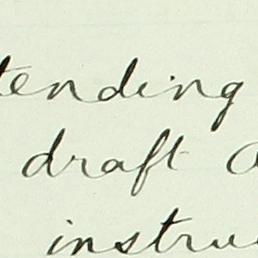 tending
draft
instru